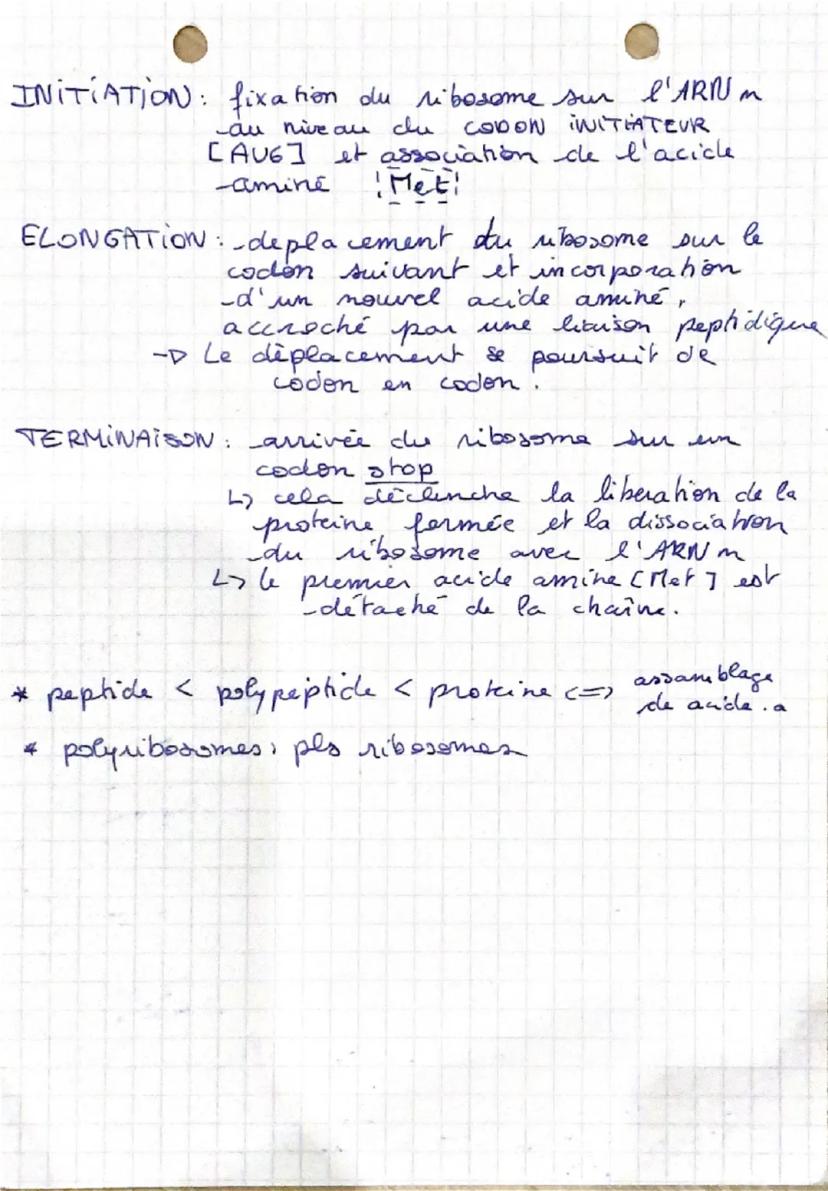 INITIATION : fixation du ribosome sur l'ARN m
au niveau du CODON INITIATEUR
[AUG] et association de l'acide
aminé Met
ELONGATION : deplacement du ribosome sur le
codon suivant et incorporation
d'un nouvel acide aminé,
accroché par une liaison peptidique
-> Le déplacement se poursuit de
codon en codon.
TERMINAISON : arrivée du ribosome sur un
codon stop
↳ cela déclenche la liberation de la
proteine formée et la dissociation
du ribosome avec l'ARN m
↳ le premier acide aminé [Met] est
détaché de la chaîne.
* peptide < polypeptide < proteine <=> assamblage
de acide.a
* polyribosomes : pls ribosomes